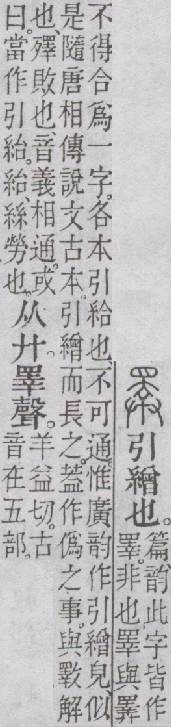 引繒也。
篇、韵此字皆作
睪。非也。睪與𢍰
不得合爲一字。各本引給也。不可通。惟廣韵作引繒皃。似
是隨唐相傳說文古本。引繒而長之。葢作僞之事。與斁解
也、殬敗也、音義相通。或
曰。當作引紿。紿絲勞也。
从廾睪聲。
羊益切。古
音在五部。